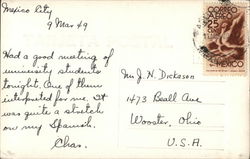 Mexico City
9 Mar 49
Had a good meeting of
university students
tonight. One of them
interpreted for me. It
was quite a stretch
on my Spanish.
Chas.
CORREO
AEREO
25
MEXICO
Mr J. N. Dickason
1473 Beall Ave
Wooster, Ohio
U.S.A.